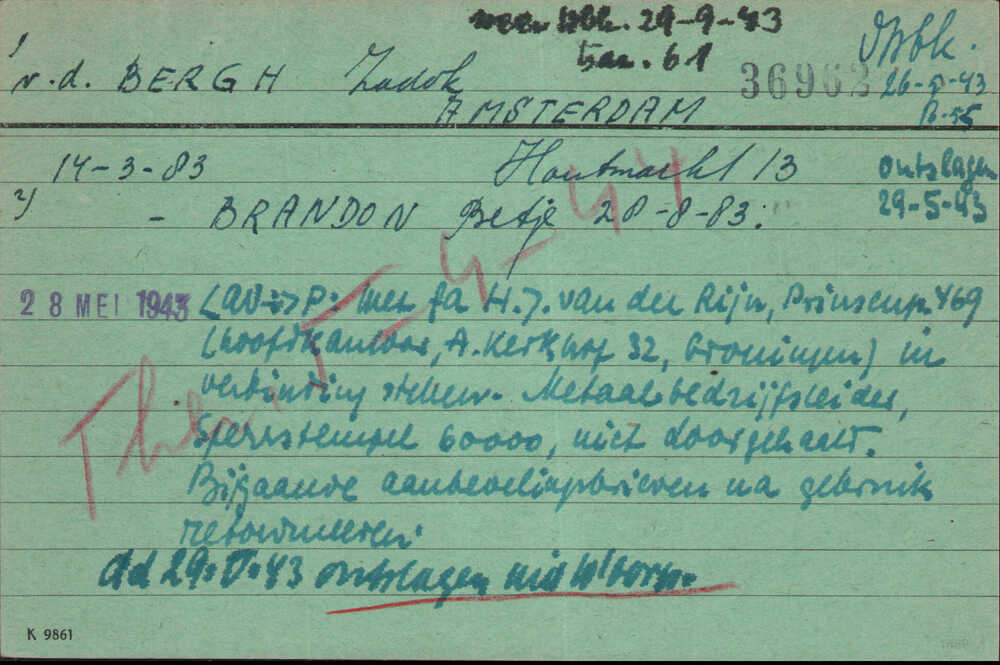 Wbk. 29-9-43
bar. 61
Wbk.
1) v.d. BERGH Zadok
36962 26-V-43
AMSTERDAM B-55
14-3-83 Houtmarkt 13 ontslagen
2) - BRANDON Betje 28-8-83. 29-5-43
28 MEI 1943 LAV->P. met fa H.J. van der Rijn, Prinsengr. 469
(hoofdkantoor, A. Kerkhof 32, Groningen) in
verbinding stellen. Metaalbedrijfsleider,
Sperrstempel 60000, niet doorgehaald.
Bijgaande aanbevelingsbrieven na gebruik
retourneeren.
Ad 29-V-43 ontslagen uit W'bork.
4-9-44
K 9861